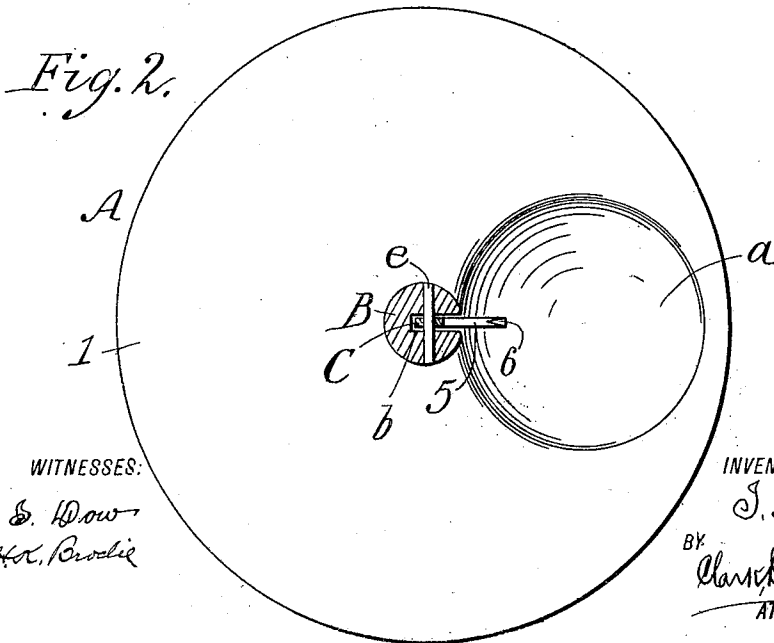 Fig. 2.
A
e
a
B
1
C
b
5
6
WITNESSES:
S. Dow
H. K. Brodie
INVEN
J.
BY
Clark,
AT